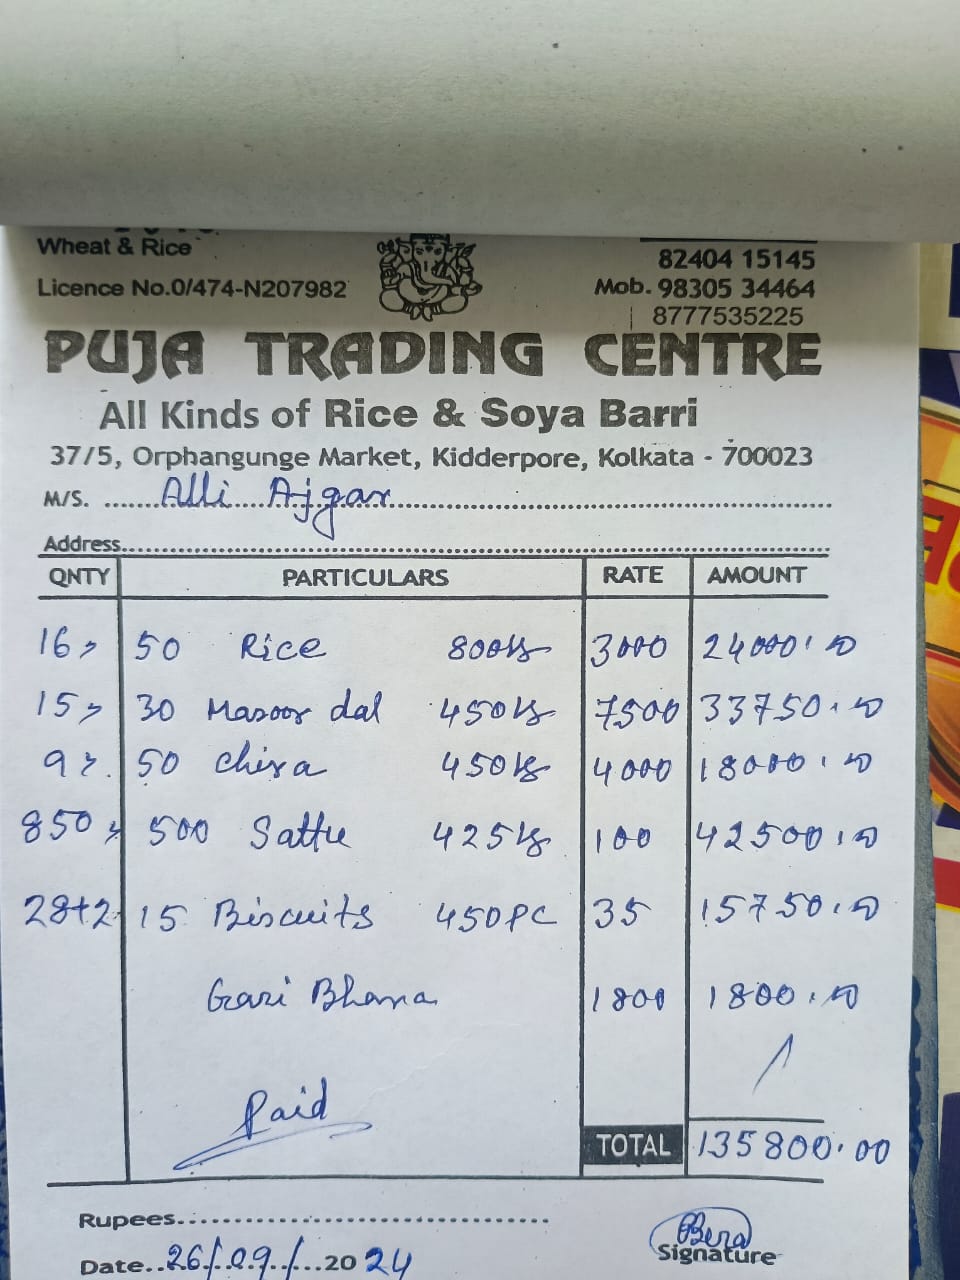 Wheat & Rice
82404 15145
Licence No.0/474-N207982
Mob. 98305 34464
8777535225
PUJA TRADING CENTRE
All Kinds of Rice & Soya Barri
37/5, Orphangunge Market, Kidderpore, Kolkata - 700023
M/S. Alli Ajgar
Address
QNTY PARTICULARS RATE AMOUNT
16 50 Rice 800 kg 3000 24000.00
15 30 Masoor dal 450 kg 7500 33750.00
9 50 Chira 450 kg 4000 18000.00
850 500 Sattu 425 kg 100 42500.00
28+2 15 Biscuits 450 PC 35 15750.00
Gari Bhara 1800 1800.00
Paid
TOTAL 135800.00
Rupees
Date 26/09/2024
Signature